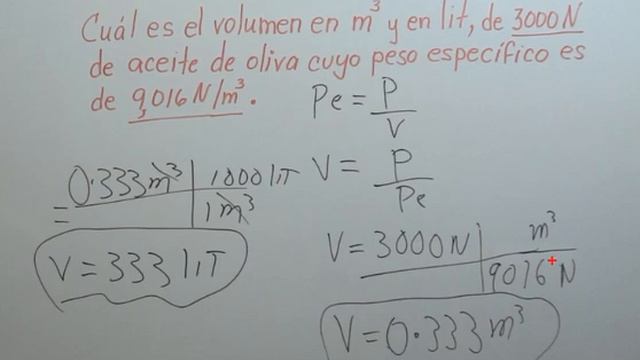 Cuál es el volumen en m³ y en lit, de 3000 N
de aceite de oliva cuyo peso específico es
de 9,016 N/m³.
Pe = P / V
V = P / Pe
V = 3000 N | m³ / 9016 N
V = 0.333 m³
= 0.333 m³ | 1000 lit / 1 m³
V = 333 lit